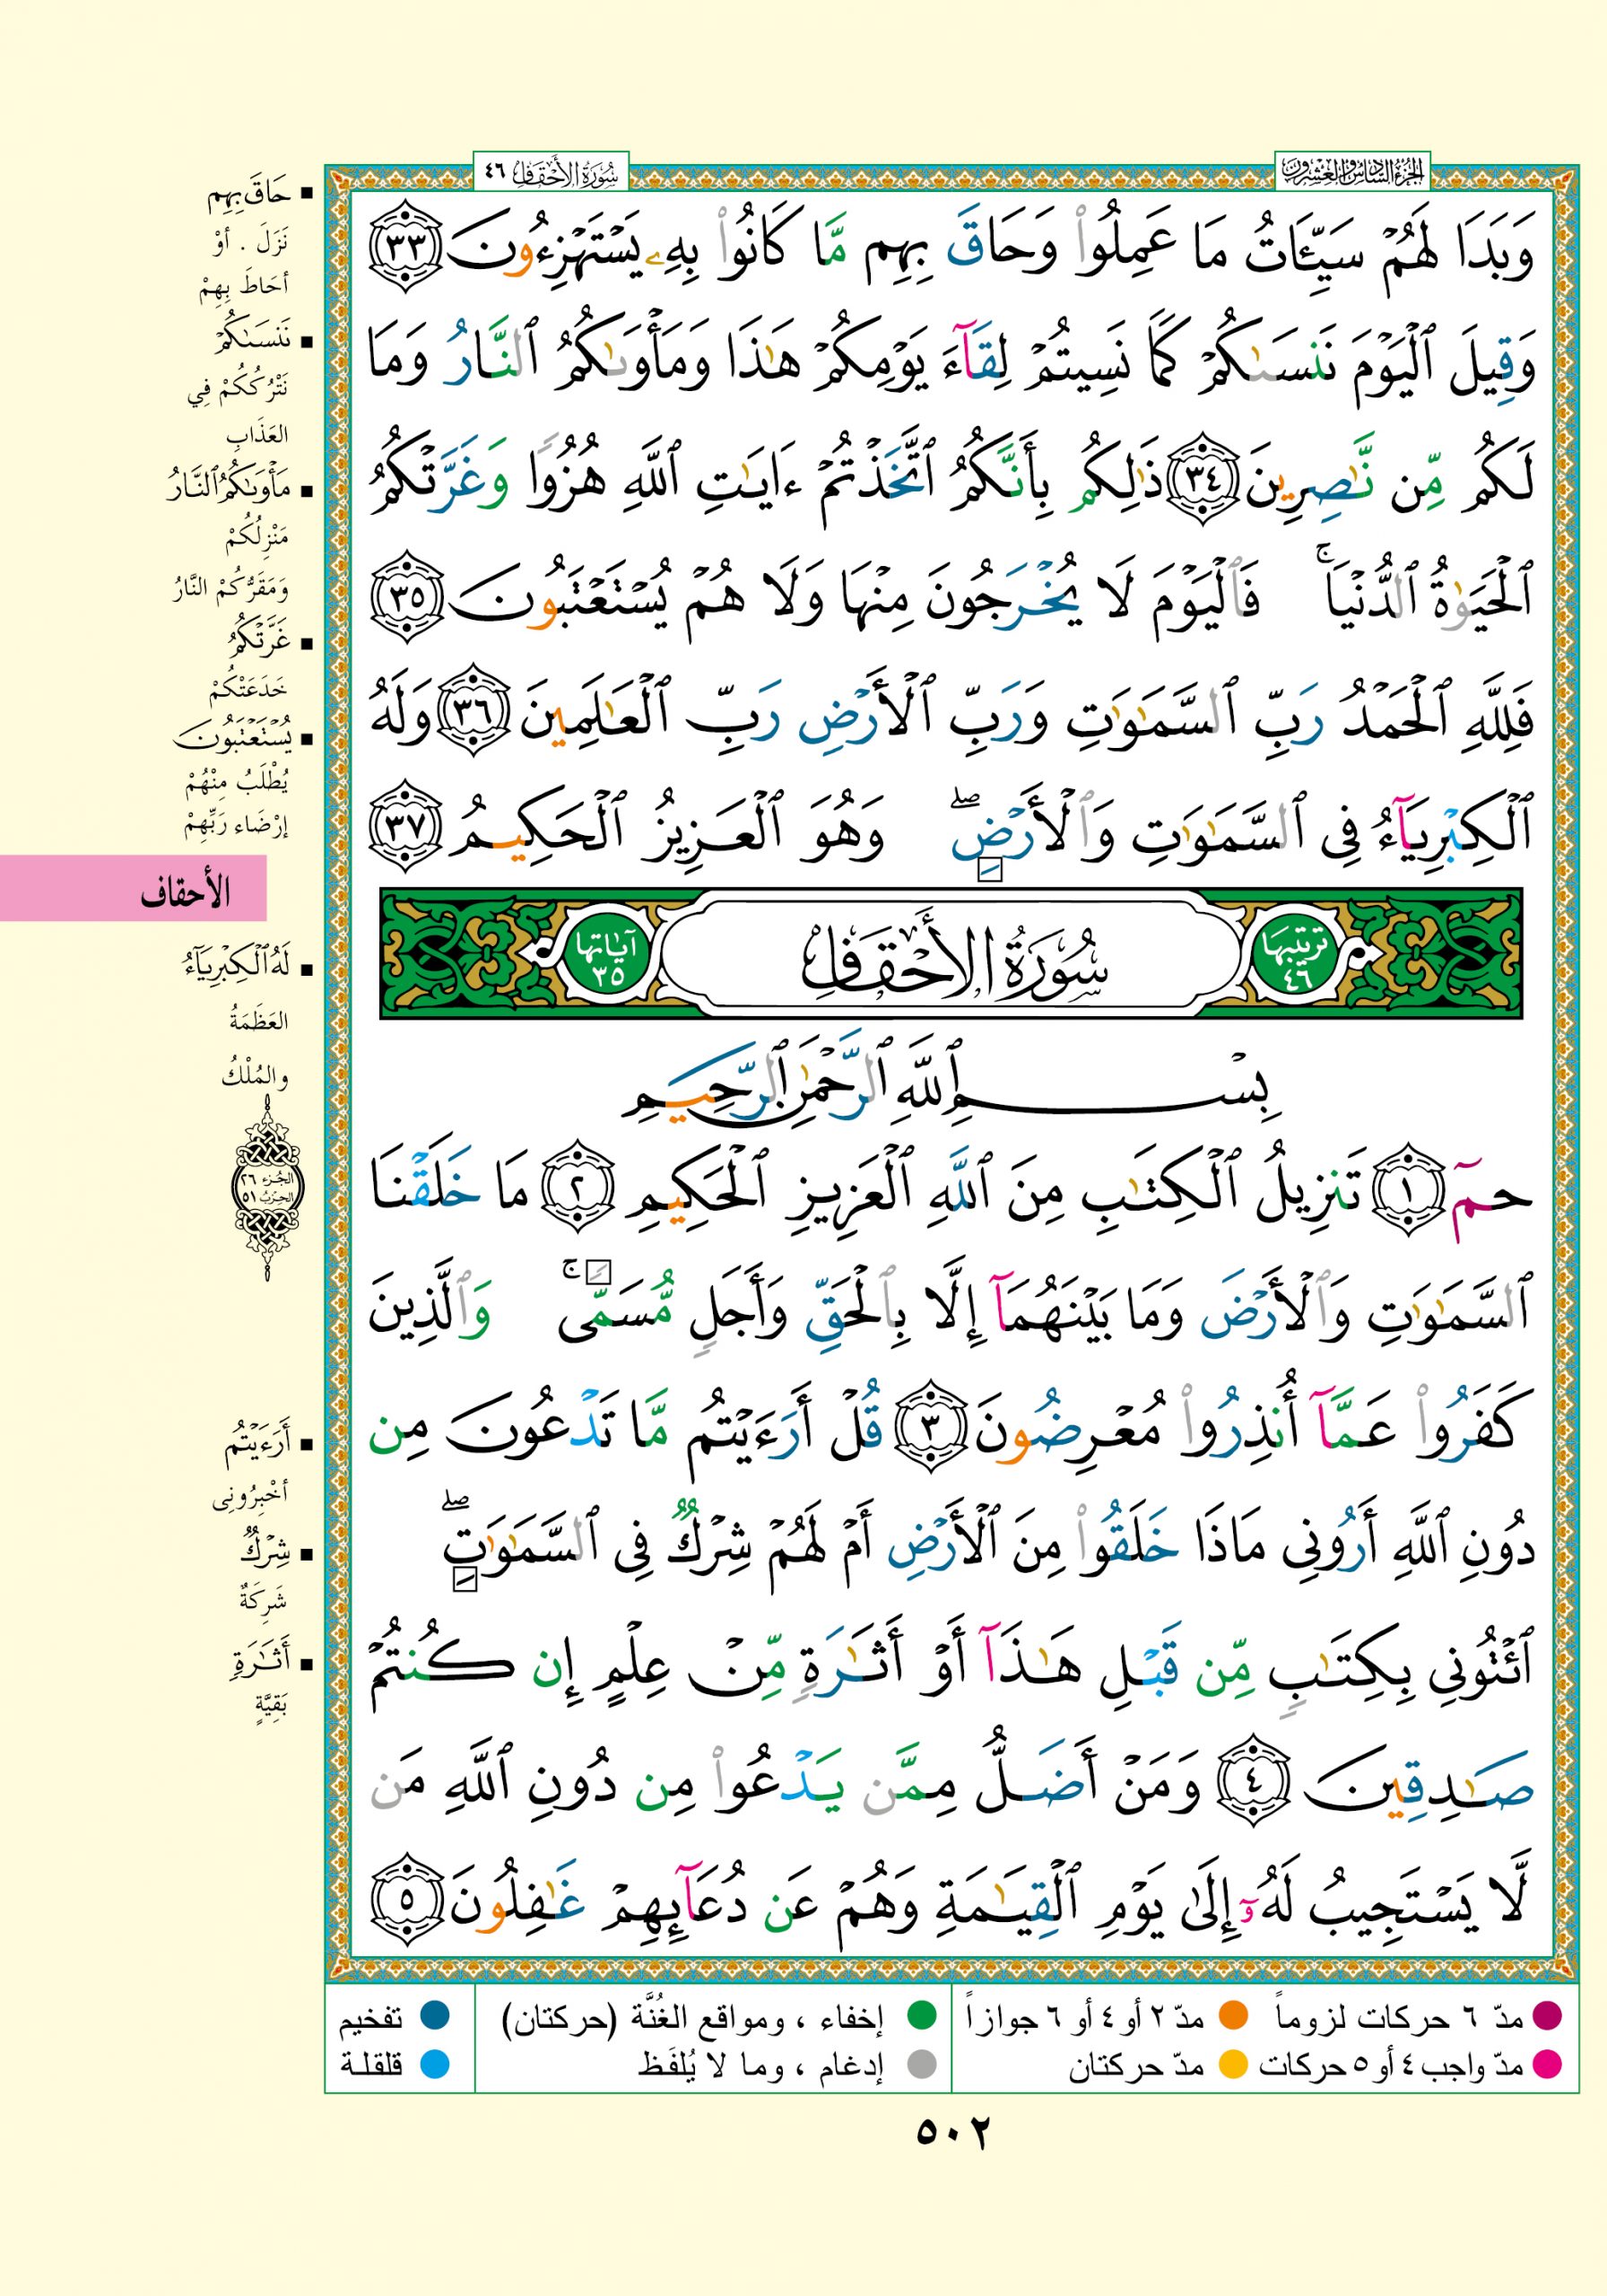 الجزء السادس والعشرون
سورة الأحقاف ٤٦
وَبَدَا لَهُمْ سَيِّـَٔاتُ مَا عَمِلُوا۟ وَحَاقَ بِهِم مَّا كَانُوا۟ بِهِۦ يَسْتَهْزِءُونَ ٣٣
وَقِيلَ ٱلْيَوْمَ نَنسَىٰكُمْ كَمَا نَسِيتُمْ لِقَآءَ يَوْمِكُمْ هَٰذَا وَمَأْوَىٰكُمُ ٱلنَّارُ وَمَا
لَكُم مِّن نَّٰصِرِينَ ٣٤ ذَٰلِكُم بِأَنَّكُمُ ٱتَّخَذْتُمْ ءَايَٰتِ ٱللَّهِ هُزُوًا وَغَرَّتْكُمُ
ٱلْحَيَوٰةُ ٱلدُّنْيَا ۚ فَٱلْيَوْمَ لَا يُخْرَجُونَ مِنْهَا وَلَا هُمْ يُسْتَعْتَبُونَ ٣٥
فَلِلَّهِ ٱلْحَمْدُ رَبِّ ٱلسَّمَٰوَٰتِ وَرَبِّ ٱلْأَرْضِ رَبِّ ٱلْعَٰلَمِينَ ٣٦ وَلَهُ
ٱلْكِبْرِيَآءُ فِى ٱلسَّمَٰوَٰتِ وَٱلْأَرْضِ ۖ وَهُوَ ٱلْعَزِيزُ ٱلْحَكِيمُ ٣٧
ترتيبها ٤٦
سُورَةُ الأَحْقَافِ
آياتها ٣٥
بِسْمِ ٱللَّهِ ٱلرَّحْمَٰنِ ٱلرَّحِيمِ
حمٓ ١ تَنزِيلُ ٱلْكِتَٰبِ مِنَ ٱللَّهِ ٱلْعَزِيزِ ٱلْحَكِيمِ ٢ مَا خَلَقْنَا
ٱلسَّمَٰوَٰتِ وَٱلْأَرْضَ وَمَا بَيْنَهُمَآ إِلَّا بِٱلْحَقِّ وَأَجَلٍ مُّسَمًّى ۚ وَٱلَّذِينَ
كَفَرُوا۟ عَمَّآ أُنذِرُوا۟ مُعْرِضُونَ ٣ قُلْ أَرَءَيْتُم مَّا تَدْعُونَ مِن
دُونِ ٱللَّهِ أَرُونِى مَاذَا خَلَقُوا۟ مِنَ ٱلْأَرْضِ أَمْ لَهُمْ شِرْكٌ فِى ٱلسَّمَٰوَٰتِ ۖ
ٱئْتُونِى بِكِتَٰبٍ مِّن قَبْلِ هَٰذَآ أَوْ أَثَٰرَةٍ مِّنْ عِلْمٍ إِن كُنتُمْ
صَٰدِقِينَ ٤ وَمَنْ أَضَلُّ مِمَّن يَدْعُوا۟ مِن دُونِ ٱللَّهِ مَن
لَّا يَسْتَجِيبُ لَهُۥٓ إِلَىٰ يَوْمِ ٱلْقِيَٰمَةِ وَهُمْ عَن دُعَآئِهِمْ غَٰفِلُونَ ٥
حَاقَ بِهِم
نَزَلَ . أوْ
أحَاطَ بِهِمْ
نَنسَىٰكُمْ
نَتْرُكُكُمْ فِي
العَذَابِ
مَأْوَىٰكُمُ ٱلنَّارُ
مَنْزِلُكُمْ
وَمَقَرُّكُم النَّارُ
غَرَّتْكُمُ
خَدَعَتْكُمْ
يُسْتَعْتَبُونَ
يُطْلَبُ مِنْهُمْ
إرْضَاء رَبِّهِمْ
الأحقاف
لَهُ ٱلْكِبْرِيَآءُ
العَظَمَةُ
والمُلْكُ
الجزء ٢٦
الحزب ٥١
أَرَءَيْتُم
أخْبِرُونِى
شِرْكٌ
شَرِكَةٌ
أَثَٰرَةٍ
بَقِيَّةٍ
مدّ ٦ حركات لزوماً
مدّ ٢ أو ٤ أو ٦ جوازاً
إخفاء ، ومواقع الغُنَّة (حركتان)
تفخيم
مدّ واجب ٤ أو ٥ حركات
مدّ حركتان
إدغام ، وما لا يُلفَظ
قلقلة
٥٠٢